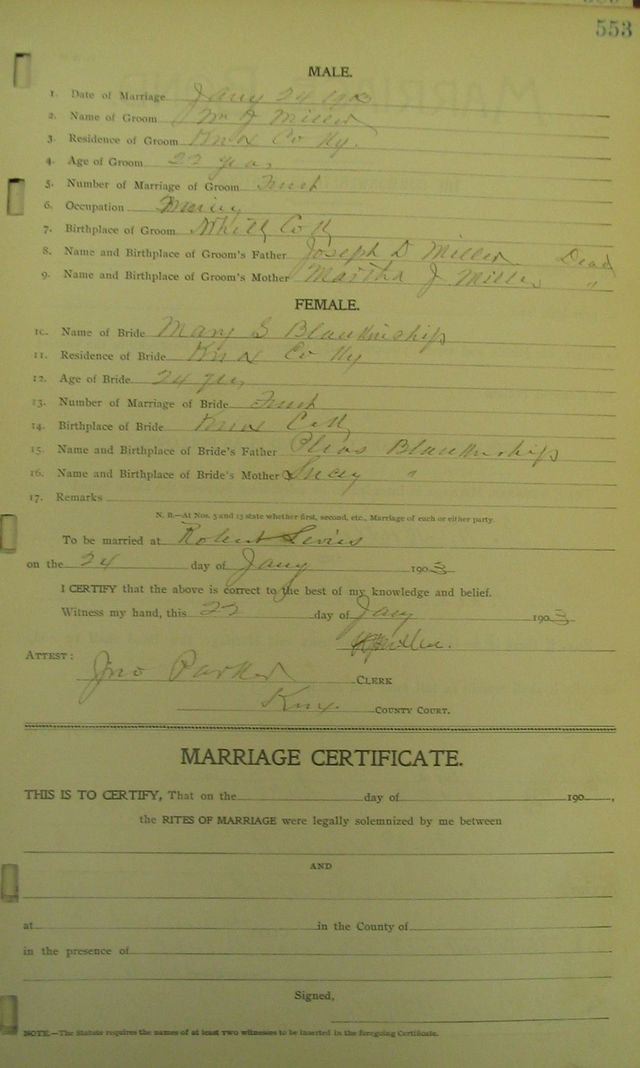 553
MALE.
1. Date of Marriage Jany 24 1903
2. Name of Groom Wm J Miller
3. Residence of Groom Knox Co Ky.
4. Age of Groom 22 years
5. Number of Marriage of Groom First
6. Occupation
7. Birthplace of Groom Whitly Co Ky
8. Name and Birthplace of Groom's Father Joseph D Miller Dead
9. Name and Birthplace of Groom's Mother Martha J Miller "
FEMALE.
10. Name of Bride Mary S Blankinship
11. Residence of Bride Knox Co Ky
12. Age of Bride 24 yrs
13. Number of Marriage of Bride First
14. Birthplace of Bride Knox Co Ky
15. Name and Birthplace of Bride's Father Blankinship
16. Name and Birthplace of Bride's Mother "
17. Remarks
N. B.—At Nos. 5 and 13 state whether first, second, etc., Marriage of each or either party.
To be married at Robert
on the 24 day of Jany 1903
I CERTIFY that the above is correct to the best of my knowledge and belief.
Witness my hand, this 22 day of Jany 1903
Miller.
ATTEST:
Jno Parker CLERK
Knox COUNTY COURT.
MARRIAGE CERTIFICATE.
THIS IS TO CERTIFY, That on the day of 190 ,
the RITES OF MARRIAGE were legally solemnized by me between
AND
at in the County of
in the presence of
Signed,
NOTE.—The Statute requires the names of at least two witnesses to be inserted in the foregoing Certificate.